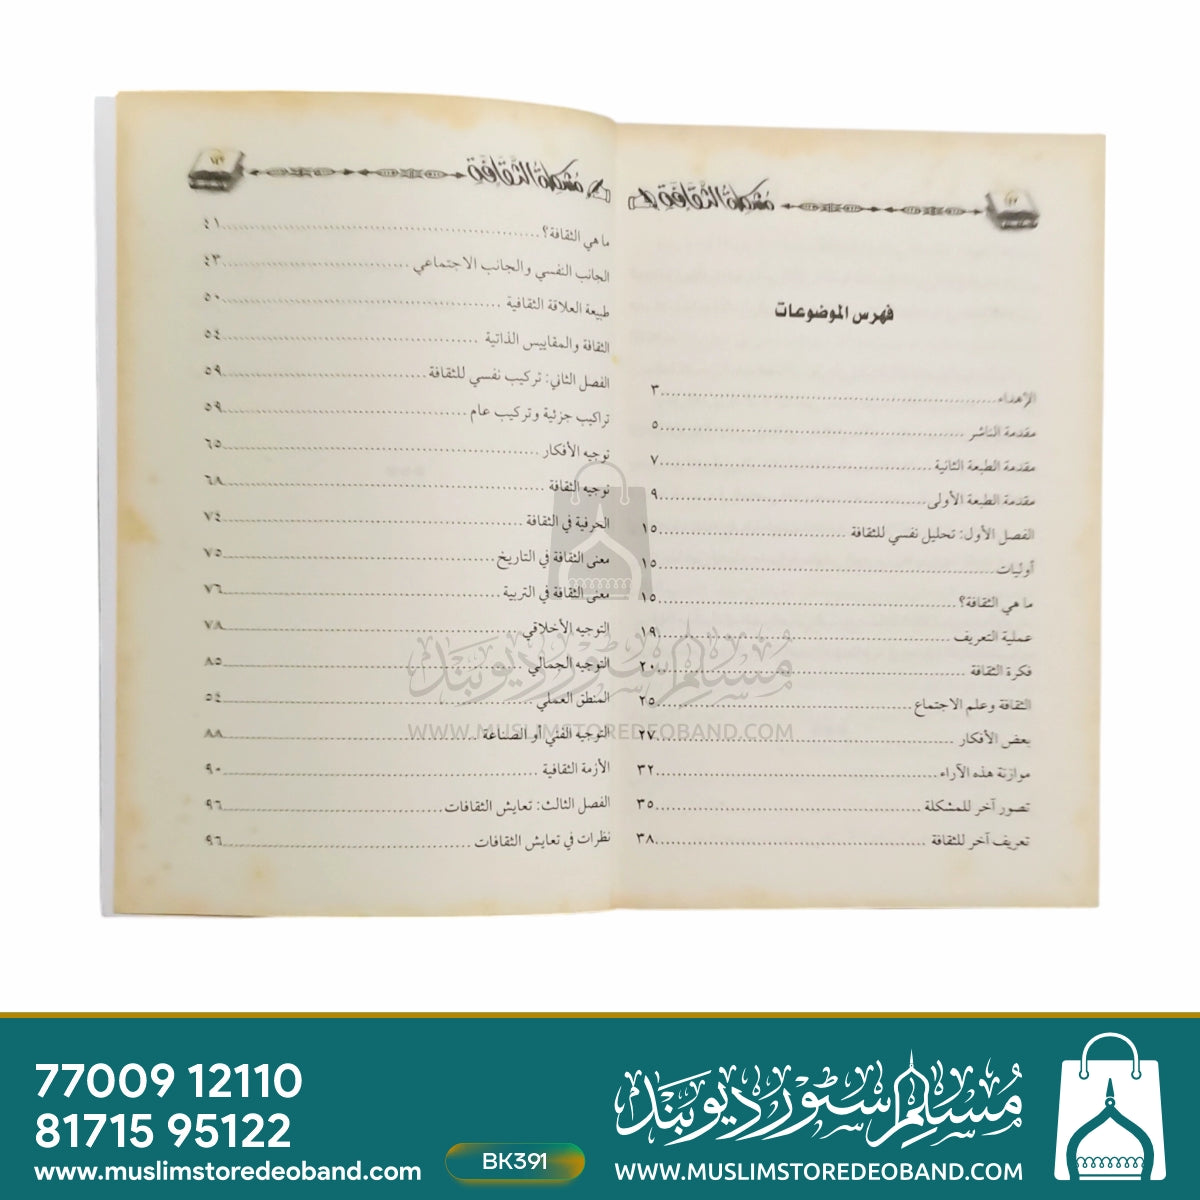 مشكلة الثقافة
فهرس الموضوعات
الإهداء................................٣
مقدمة الناشر................................٥
مقدمة الطبعة الثانية................................٧
مقدمة الطبعة الأولى................................٩
الفصل الأول: تحليل نفسي للثقافة................................١٥
أوليات................................١٥
ما هي الثقافة؟................................١٥
عملية التعريف................................١٩
فكرة الثقافة................................٢٠
الثقافة وعلم الاجتماع................................٢٥
بعض الأفكار................................٢٧
موازنة هذه الآراء................................٣٢
تصور آخر للمشكلة................................٣٥
تعريف آخر للثقافة................................٣٨
مشكلة الثقافة
ما هي الثقافة؟................................٤١
الجانب النفسي والجانب الاجتماعي................................٤٣
طبيعة العلاقة الثقافية................................٥٠
الثقافة والمقاييس الذاتية................................٥٤
الفصل الثاني: تركيب نفسي للثقافة................................٥٩
تراكيب جزئية وتركيب عام................................٥٩
توجيه الأفكار................................٦٥
توجيه الثقافة................................٦٨
الحرفية في الثقافة................................٧٤
معنى الثقافة في التاريخ................................٧٥
معنى الثقافة في التربية................................٧٦
التوجيه الأخلاقي................................٧٨
التوجيه الجمالي................................٨٥
المنطق العملي................................٥٤
التوجيه الفني أو الصناعة................................٨٨
الأزمة الثقافية................................٩٠
الفصل الثالث: تعايش الثقافات................................٩٦
نظرات في تعايش الثقافات................................٩٦
مسلم سٹور دیوبند
WWW.MUSLIMSTOREDEOBAND.COM
77009 12110
81715 95122
www.muslimstoredeoband.com
BK391
مُسلم سٹور دیوبند
WWW.MUSLIMSTOREDEOBAND.COM